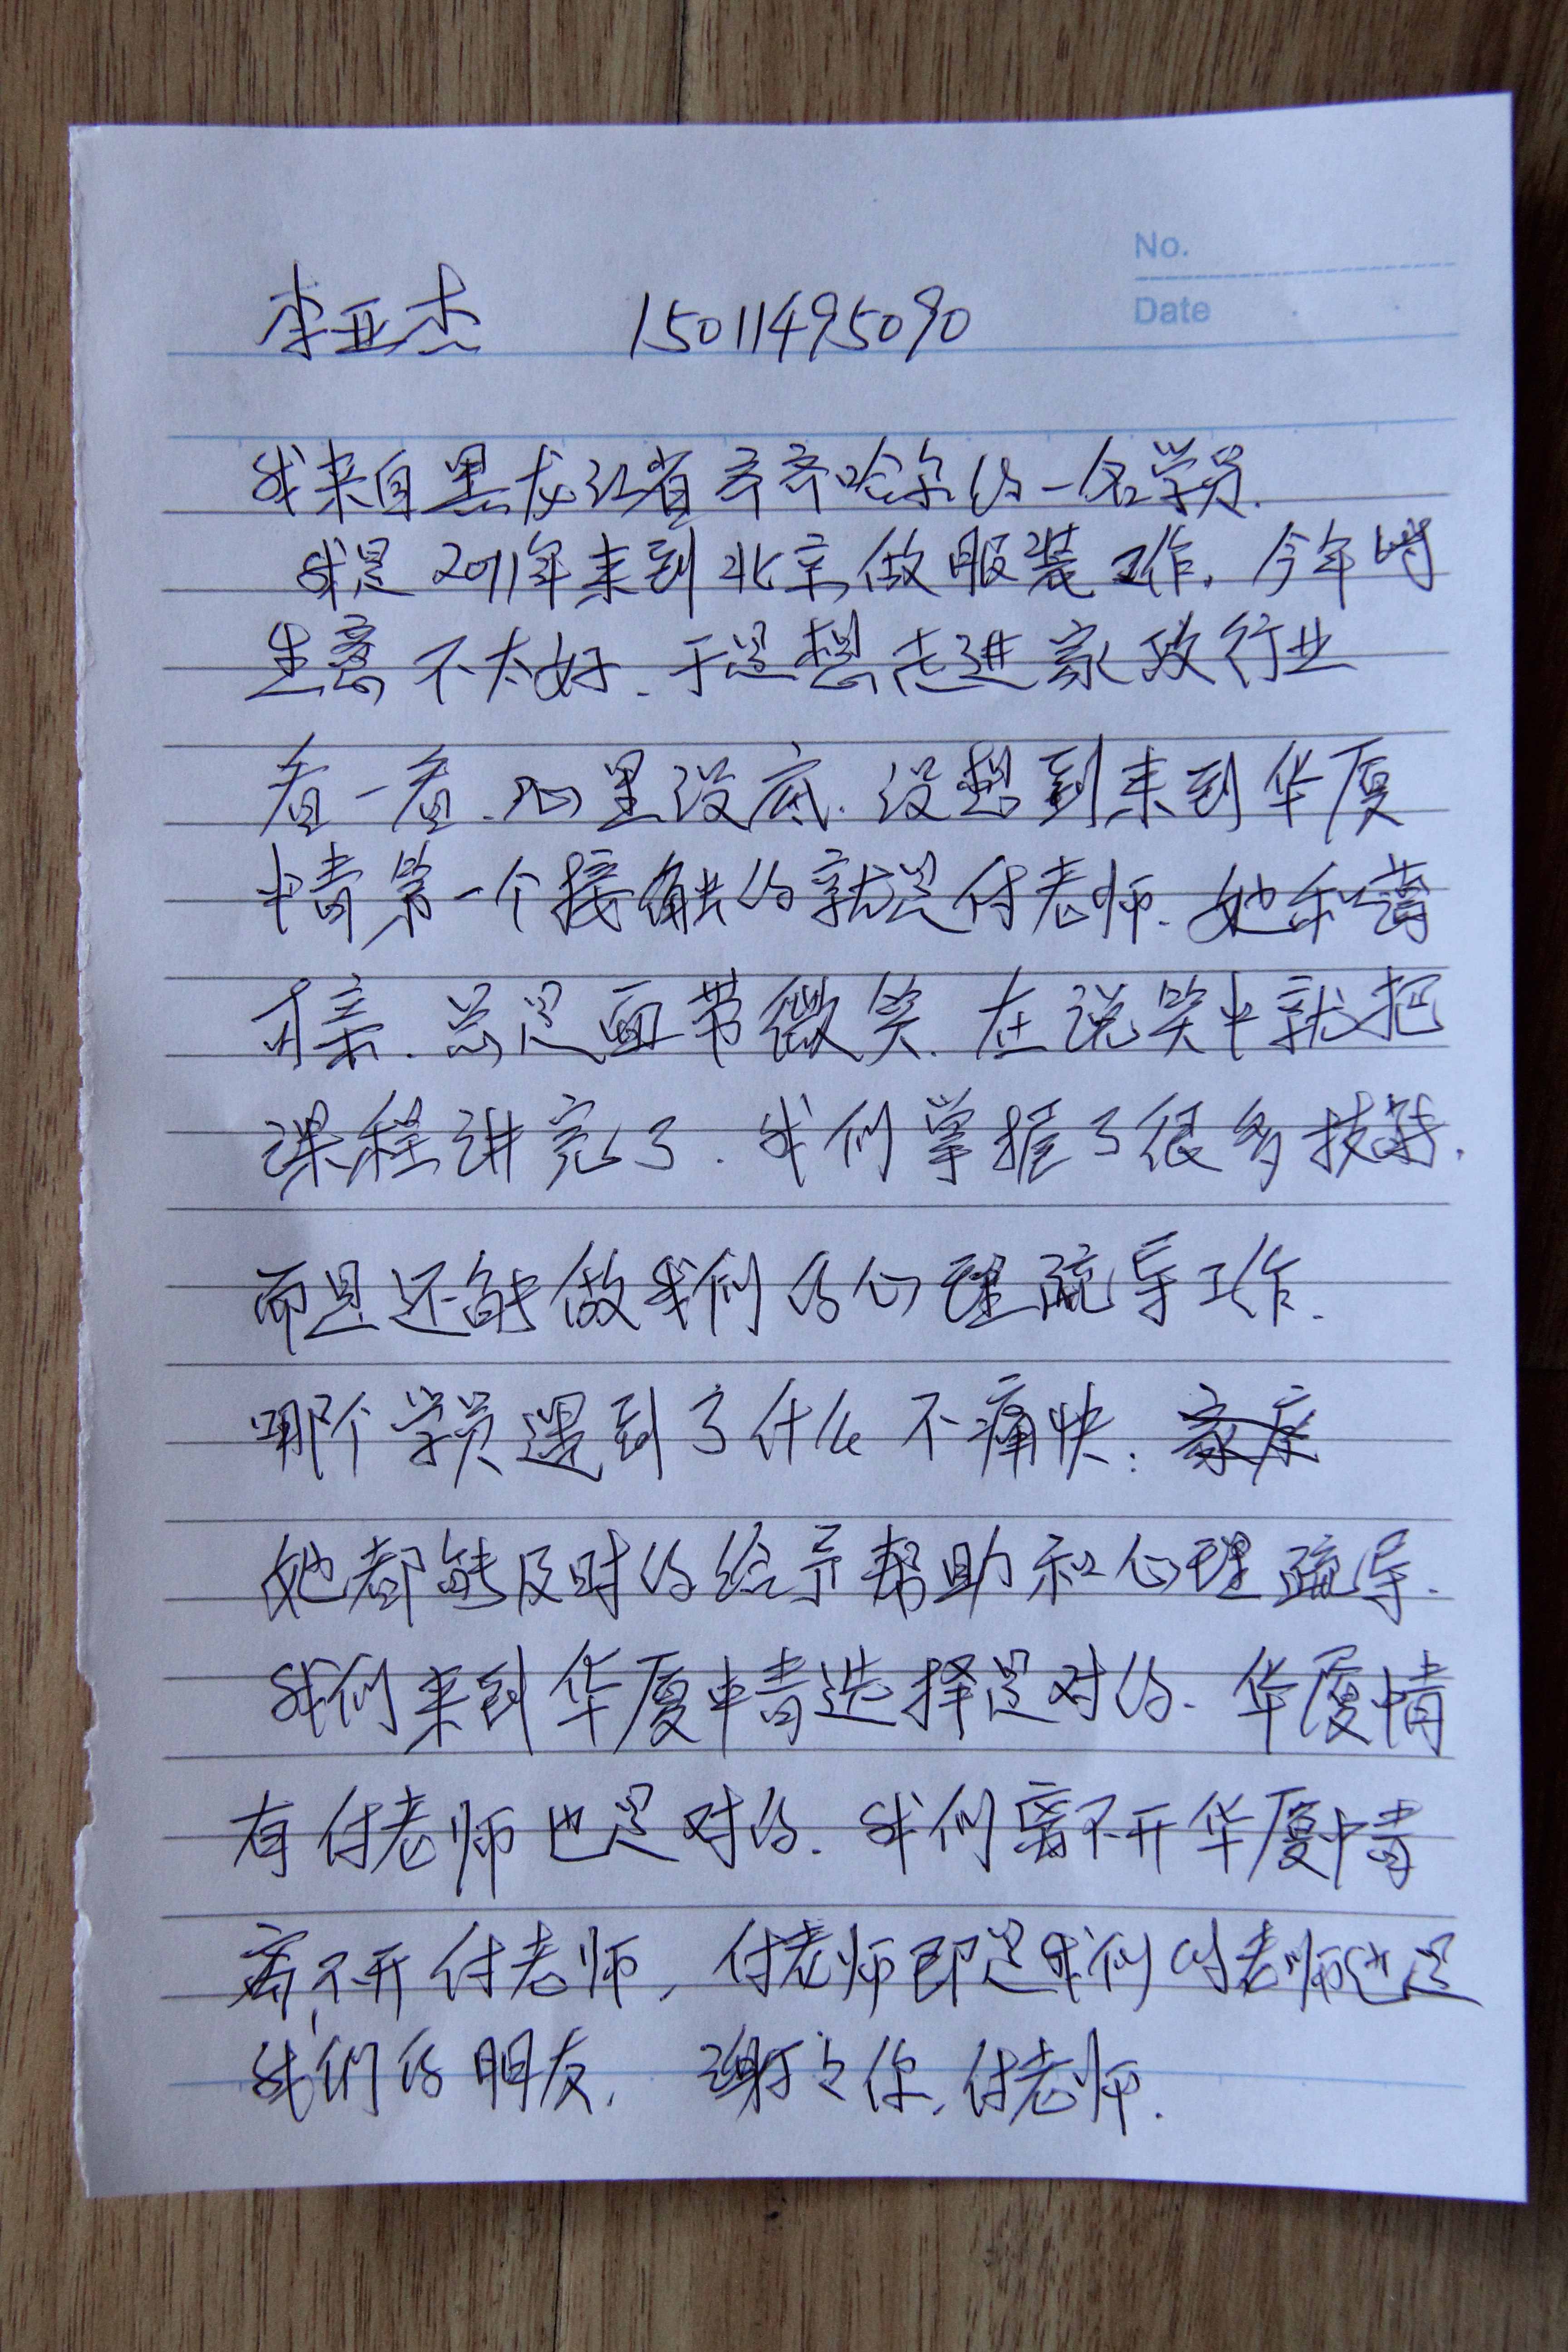 No.
Date
李亚杰 15011495090
我来自黑龙江省齐齐哈尔的一名学员.
我是2011年来到北京做服装工作. 今年的
生意不太好. 于是想走进家政行业
看一看. 心里没底. 没想到来到华厦
情第一个接触的就是付老师. 她和蔼
可亲. 总是面带微笑. 在说笑中就把
课程讲完了. 我们掌握了很多技巧.
而且还能做我们的心理疏导工作.
哪个学员遇到了什么不痛快:
她都能及时的给予帮助和心理疏导.
我们来到华厦情选择是对的. 华厦情
有付老师也是对的. 我们离不开华厦情
离不开付老师, 付老师即是我们的老师也是
我们的朋友, 谢谢你, 付老师.